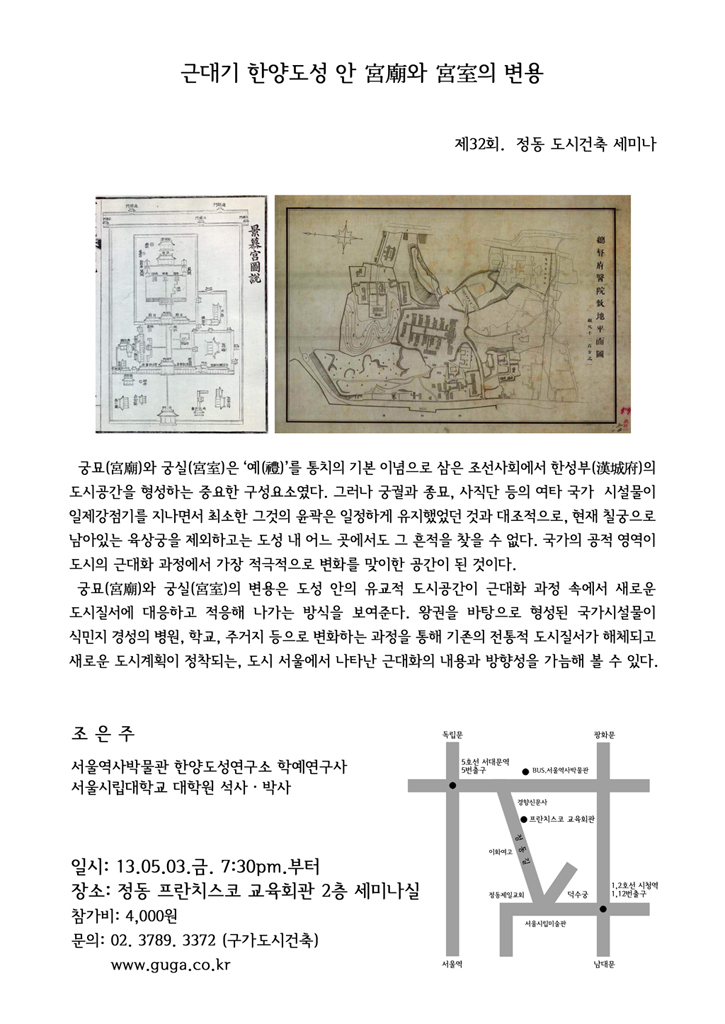 근대기 한양도성 안 宮廟와 宮室의 변용
제32회. 정동 도시건축 세미나
景慕宮圖說
總督府醫院敷地平面圖
궁묘(宮廟)와 궁실(宮室)은 ‘예(禮)’를 통치의 기본 이념으로 삼은 조선사회에서 한성부(漢城府)의
도시공간을 형성하는 중요한 구성요소였다. 그러나 궁궐과 종묘, 사직단 등의 여타 국가 시설물이
일제강점기를 지나면서 최소한 그것의 윤곽은 일정하게 유지했었던 것과 대조적으로, 현재 칠궁으로
남아있는 육상궁을 제외하고는 도성 내 어느 곳에서도 그 흔적을 찾을 수 없다. 국가의 공적 영역이
도시의 근대화 과정에서 가장 적극적으로 변화를 맞이한 공간이 된 것이다.
궁묘(宮廟)와 궁실(宮室)의 변용은 도성 안의 유교적 도시공간이 근대화 과정 속에서 새로운
도시질서에 대응하고 적응해 나가는 방식을 보여준다. 왕권을 바탕으로 형성된 국가시설물이
식민지 경성의 병원, 학교, 주거지 등으로 변화하는 과정을 통해 기존의 전통적 도시질서가 해체되고
새로운 도시계획이 정착되는, 도시 서울에서 나타난 근대화의 내용과 방향성을 가늠해 볼 수 있다.
조 은 주
서울역사박물관 한양도성연구소 학예연구사
서울시립대학교 대학원 석사 · 박사
일시: 13.05.03.금. 7:30pm.부터
장소: 정동 프란치스코 교육회관 2층 세미나실
참가비: 4,000원
문의: 02. 3789. 3372 (구가도시건축)
www.guga.co.kr
독립문
광화문
5호선 서대문역
5번출구
BUS.서울역사박물관
경향신문사
프란치스코 교육회관
정동길
이화여고
정동제일교회
덕수궁
1,2호선 시청역
1,12번출구
서울시립미술관
서울역
남대문